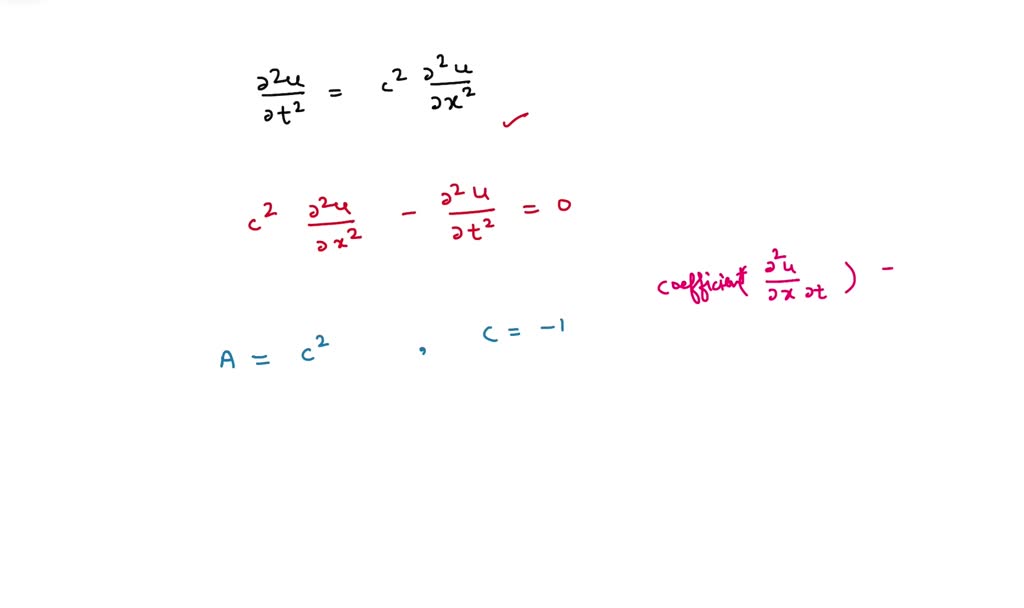 ∂²u/∂t² = c² ∂²u/∂x² ✓
c² ∂²u/∂x² - ∂²u/∂t² = 0
coefficient( ∂²u/∂x ∂t ) -
A = c² , C = -1